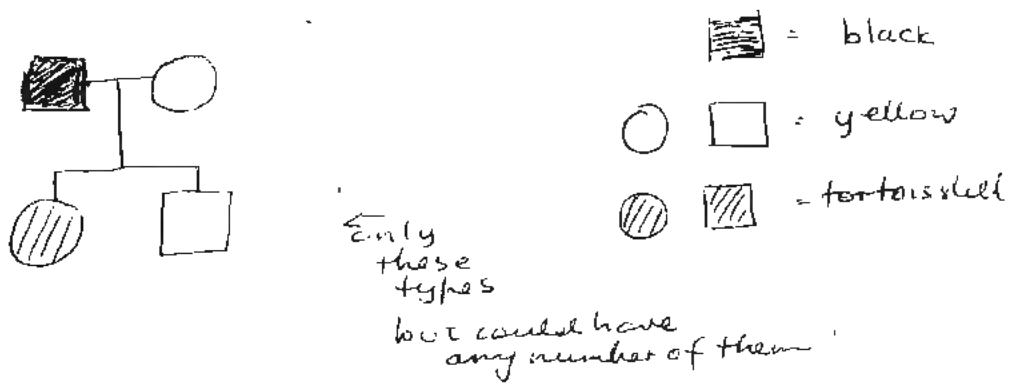 = black
= yellow
= tortoisshell
← only
these
types
but could have
any number of them